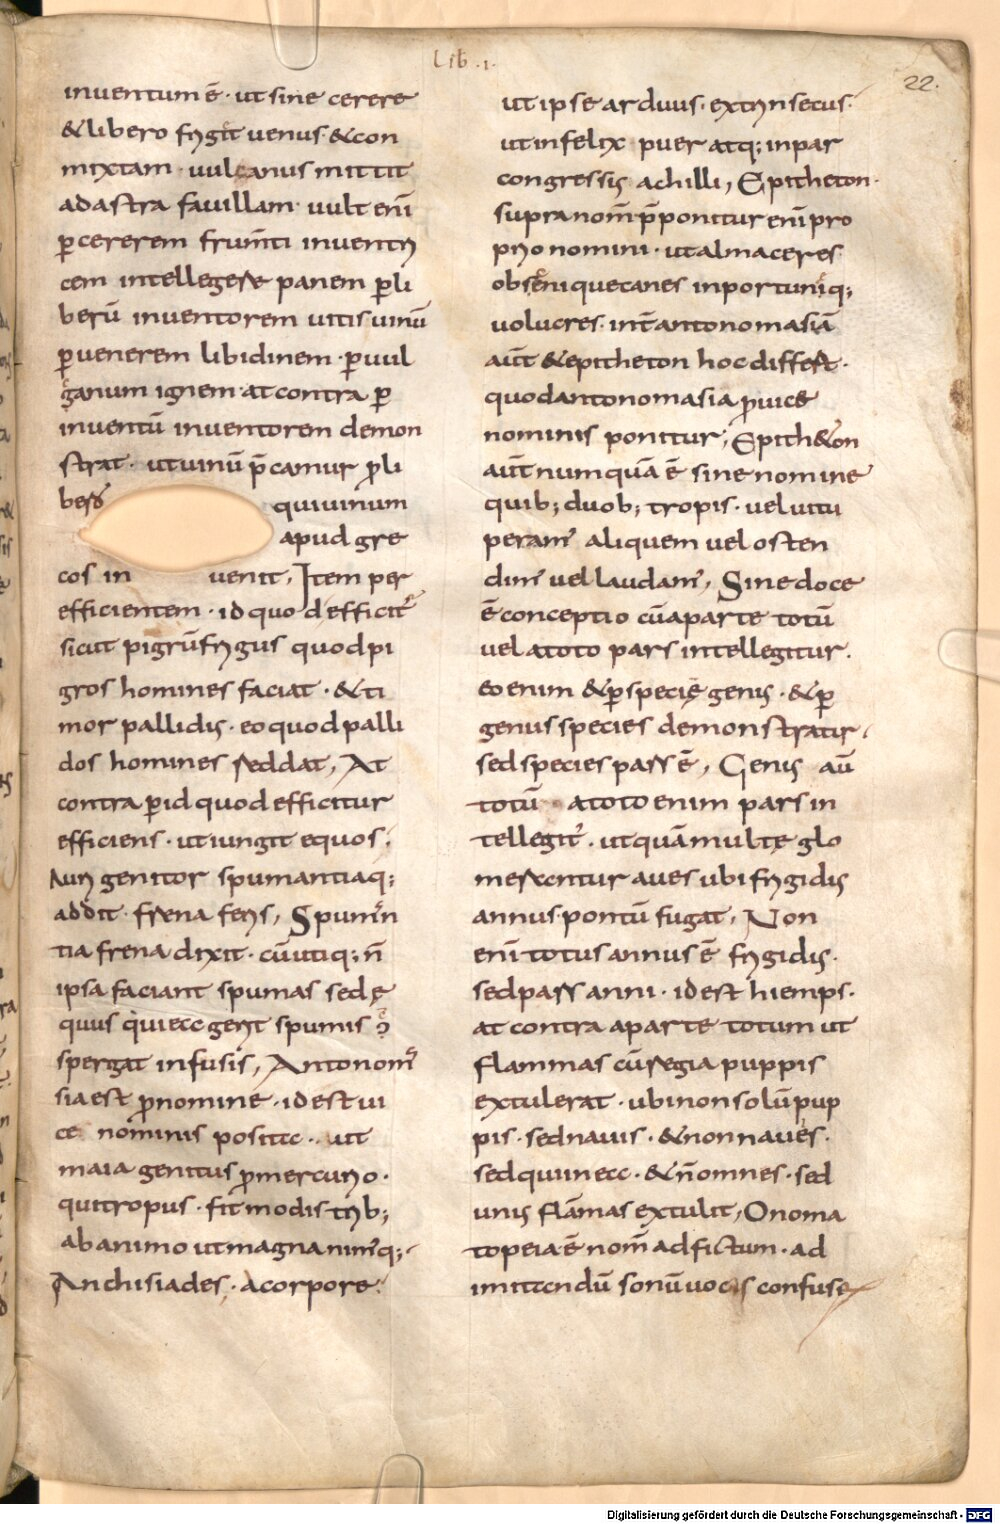 Lib .i.
22.
inventum ē· ut sine cerere
& libero frigit uenus· & con
mixtam· uulcanus mittit
ad astra fauillam· uult eni̅
p̲ cererem frum̅ti inventri
cem intellegere panem p̲ li
berū inventorem uitis uinū
p̲ uenerem libidinem· p̲ uul
ganum ignem· at contra p̲
inventū inventorem demon
strat· ut uinū p̄camur p̲ li
bero qui uinum
apud gre
cos in uenit, Item per
efficientem· id quod efficit᷑
sicut pigrū frigus quod pi
gros homines faciat· & ti
mor pallidus· eo quod palli
dos homines reddat, At
contra p̲ id quod efficitur
efficiens· ut iungit equos·
Auri genitor spumantiaq;
addit· frena feris, Spuman
tia frena dixit· cū utiq; n̄
ipsa faciant spumas sed ę
quus qui ea gerit spumis ɔ̄
spergat infusis, Antonoma
sia est p̲nomine· id est ui
ce nominis posita· ut
maia genitus p̲ mercurio·
qui tropus· fit modis trib;
ab animo ut magnanimq;
Anchisiades· a corpore·
ut ipse arduus· extrinsecus·
ut infelix puer atq; inpar
congressus achilli, Epitheton·
supra nom̄ p̄ponitur eni̅ pro
prio nomini· ut alma ceres
obseniquecanes inportuniq;
uolucres· int̄ antonomasiā
aūt & epitheton hoc differt·
quod antonomasia p̲ uice
nominis ponitur, Epith&on
aūt numquā ē sine nomine
quib; duob; tropis· vel uitu
peram᷑ aliquem vel osten
dim᷑ vel laudam᷑, Sinedoce
ē conceptio cū a parte totū
vel a toto pars intellegitur·
eo enim & p̲ specię genus· & p̲
genus species demonstratur,
sed species pars ē, Genus aū
totū a toto enim pars in
tellegit᷑· ut quā multę glo
merantur aues ubi frigidus
annus· pontū fugat, Non
eni̅ totus annus ē frigidus·
sed pars anni· id est hiemps·
at contra a parte totum ut
flammas cū regia puppis
extulerat· ubi non solū pup
pis· sed nauis· & non naues·
sed qui in ea· & n̄ omnes· sed
unus flāmas extulit, Onoma
topeia ē nom̄ adfictum· ad
imitandū sonū uocis confuse
Digitalisierung gefördert durch die Deutsche Forschungsgemeinschaft - DFG